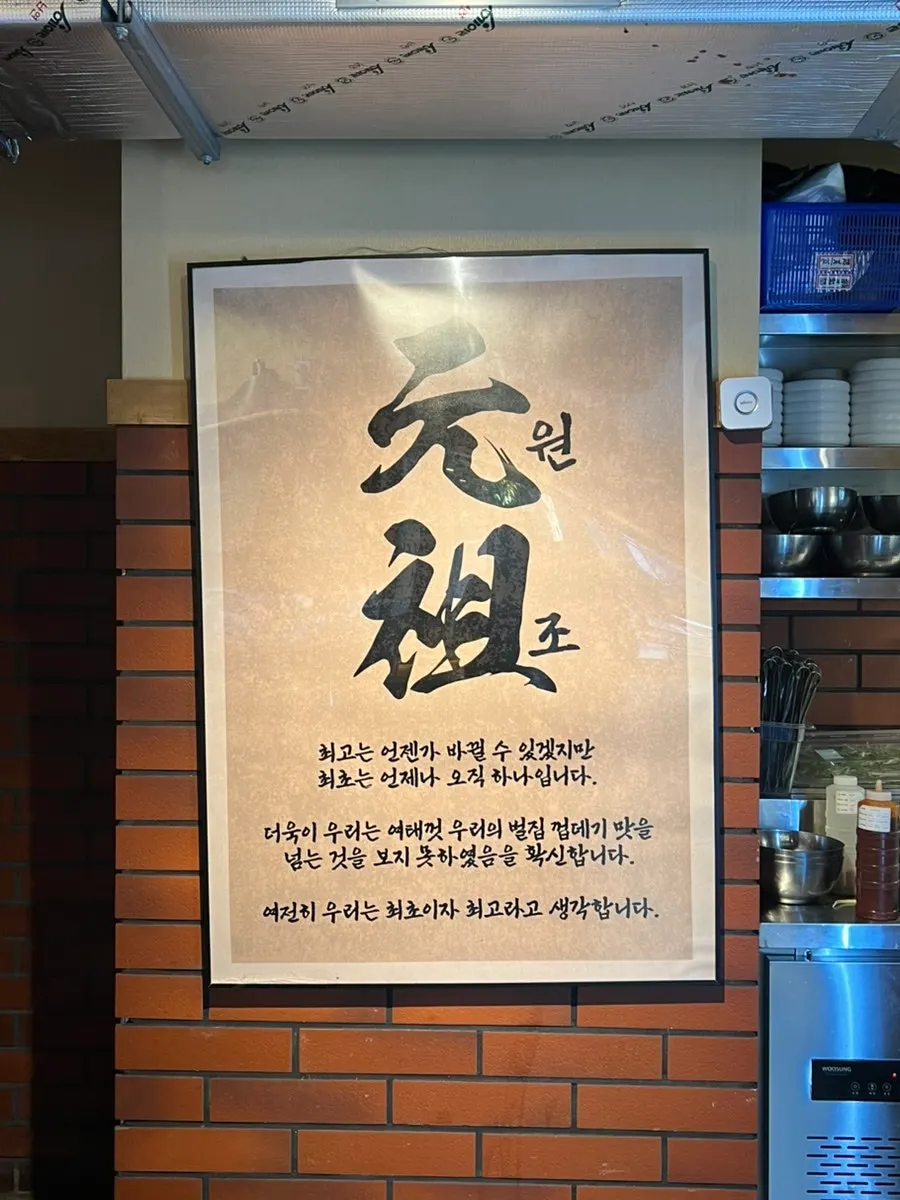 元
원
祖
조
최고는 언젠가 바뀔 수 있겠지만
최초는 언제나 오직 하나입니다.
더욱이 우리는 여태껏 우리의 벌집 껍데기 맛을
넘는 것을 보지 못하였음을 확신합니다.
여전히 우리는 최초이자 최고라고 생각합니다.
WOOSUNG